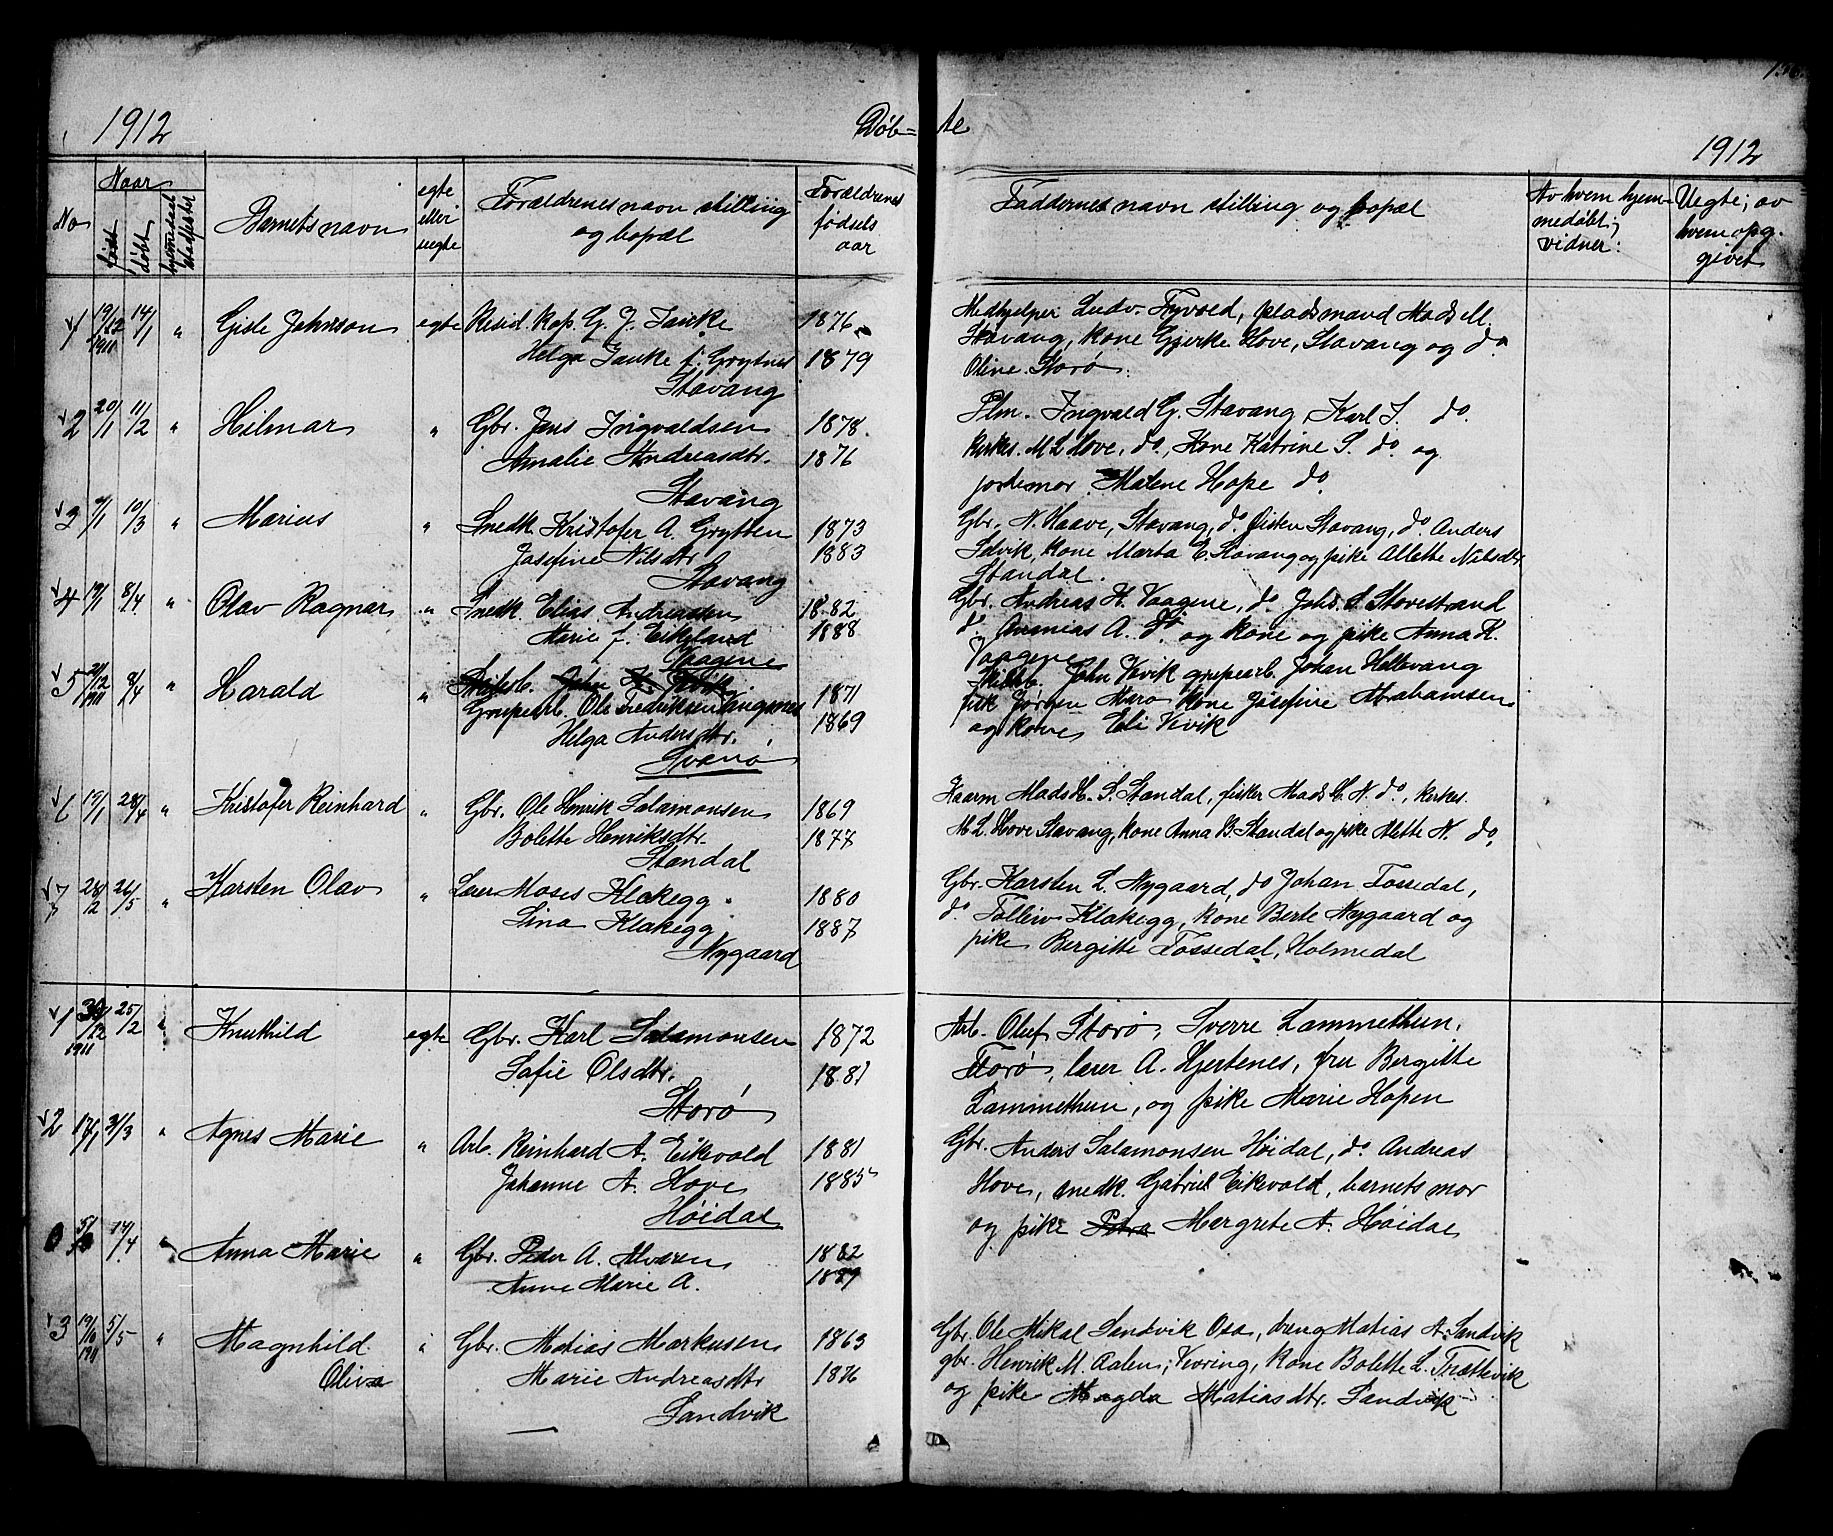 1912 Døb=te 1912
No Naar født døbt Barnets navn egte eller uegte Forældrenes navn stilling og bopæl Forældrenes fødsels aar Faddernes navn stilling og bopæl Av hvem hjemmedøbt; vidner: Uegte; av hvem opgivet
1 19/12 1911 14/1 " Gisle Johnson egte Resid. Kap. G. J. Tanke 1876 Medhjelper Ludv. Fyvold, pladsmand Mads M.
Helga Tanke f. 1879 Stavang, kone Gjerke Hove, Stavang og do
Stavang Oline Storø.
2 20/1 11/2 " Hilmar " Gbr. Jens Ingvaldsen 1878 Plm. Ingvald G. Stavang, Karl I. do.
Amalie Andreasdtr. 1876 kirkes. M L Hove, do., Kone Katrine S. do og
Stavang jordemor Malene Hope do.
3 /1 10/3 " Marius " Snedk. Kristofer A. Grytten 1873 Gbr. N. Haave, Stavang, do. Øisten Stavang, do Anders
Josefine Nilsdtr 1883 Selvik, kone Marta E. Stavang og pike Alette Nilsdtr
Stavang Standal.
4 19/1 8/4 " Olav Ragnar " Snedk. Elias Andreassen 1882 Gbr. Andreas H. Vaagene, do. Johs. S Stovestrand
Marie f. Eikeland 1888 do. Ananias A. do. og kone og pike Anna K.
Vaagene Vaagene
5 /12 1911 8/4 " Harald " Grupearb. Ole Fredriksen Vangsnes 1871 John Vevik grupearb. Johan Hellevang
Helga Andersdtr. 1869 fisk Jørgen Maro kone Josefine Abrahamsen
Svanø og kone Eli Vevik
6 19/1 28/4 " Kristofer Reinhard " Gbr. Ole Henrik Salamonsen 1869 Kaarm Mads S. Standal, fisker Mads N. do., kirkes.
Bolette Henriksdtr. 1877 M. L. Hove Stavang, kone Anna B. Standal og pike Alette N. do.
Standal
7 28/2 26/5 " Karsten Olav " Lærer Moses Klakegg 1880 Gbr. Karsten L. Nygaard, do Johan Fossedal,
Lina Klakegg 1887 do. Tolleiv Klakegg, kone Berte Nygaard og
Nygaard pike Bergitte Fossedal, Holmedal
1 30/12 1911 25/2 " Knuthild egte Gbr. Karl Salamonsen 1872 Arb. Oluf Storø, Sverre Lammethun,
Sofie Olsdtr. 1881 Storø, lærer A. Hjertenes, fru Bergitte
Storø Lammethun, og pike Marie Hopen
2 17/1 31/3 " Agnes Marie " Arb. Reinhard A. Eikevold 1881 Gbr. Anders Salamonsen Høidal, do. Andreas
Johanne A. Hove 1885 Hove, snedk. Gabriel Eikevold, barnets mor
Høidal og pike Petra Margrete A. Høidal
0 5/ 14/4 " Anna Marie " Gbr. Peder A. 1882
Anne Marie A. 1889
3 19/10 1911 5/5 " Magnhild " Gbr. Matias Markusen 1863 Gbr. Ole Mikal Sandvik Osa, dreng Matias A. Sandvik
Oliva Marie Andreasdtr 1876 gbr. Henrik M. Aalen, Vevring, kone Bolette L. Trættevik
Sandvik og pike Magda Matiasdtr. Sandvik